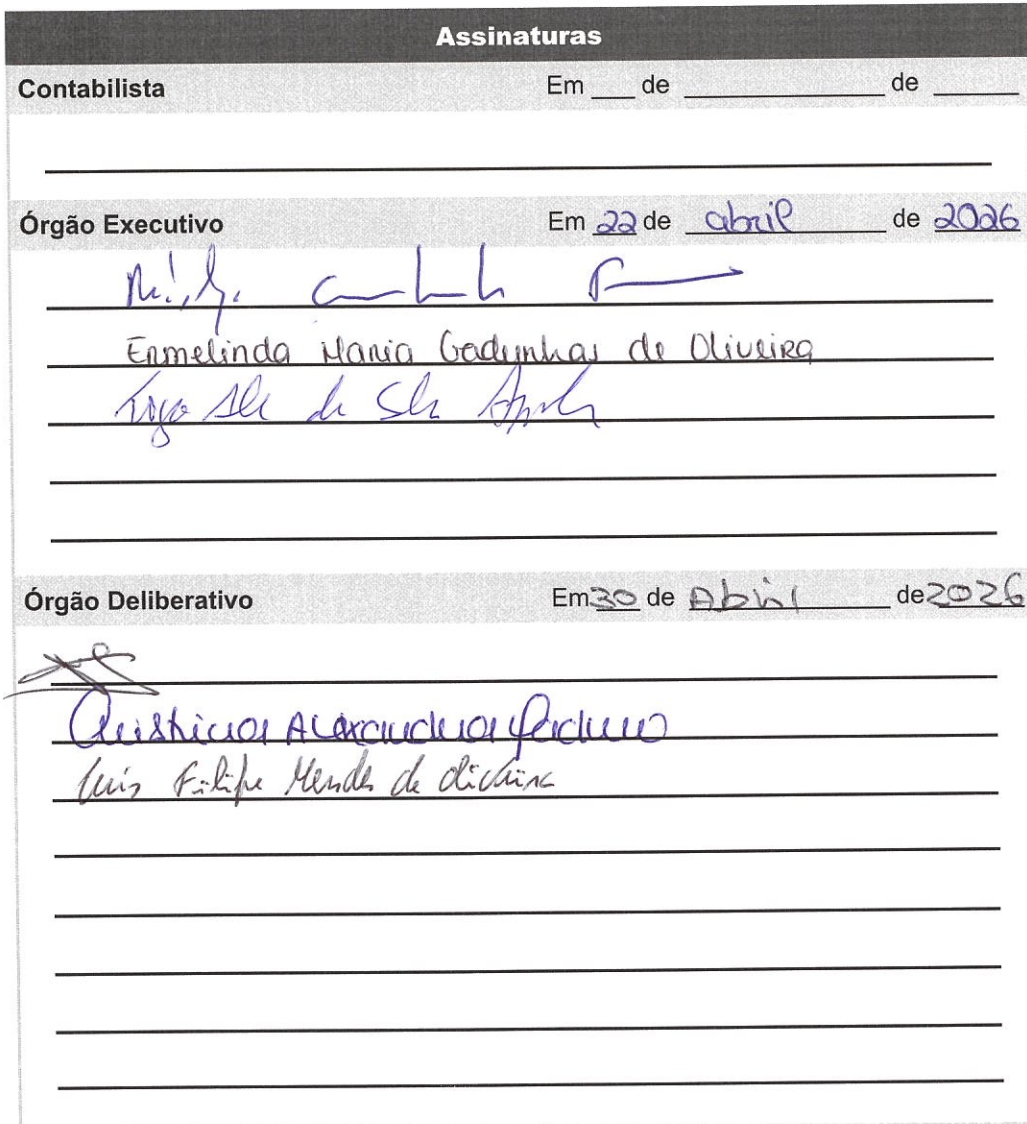 Assinaturas
Contabilista Em ___ de ______________ de ______
Órgão Executivo Em 22 de abril de 2026
Ermelinda Maria Gadunhas de Oliveira
de
Órgão Deliberativo Em 30 de Abril de 2026
Alexandra
Luis Filipe Mendes de Oliveira